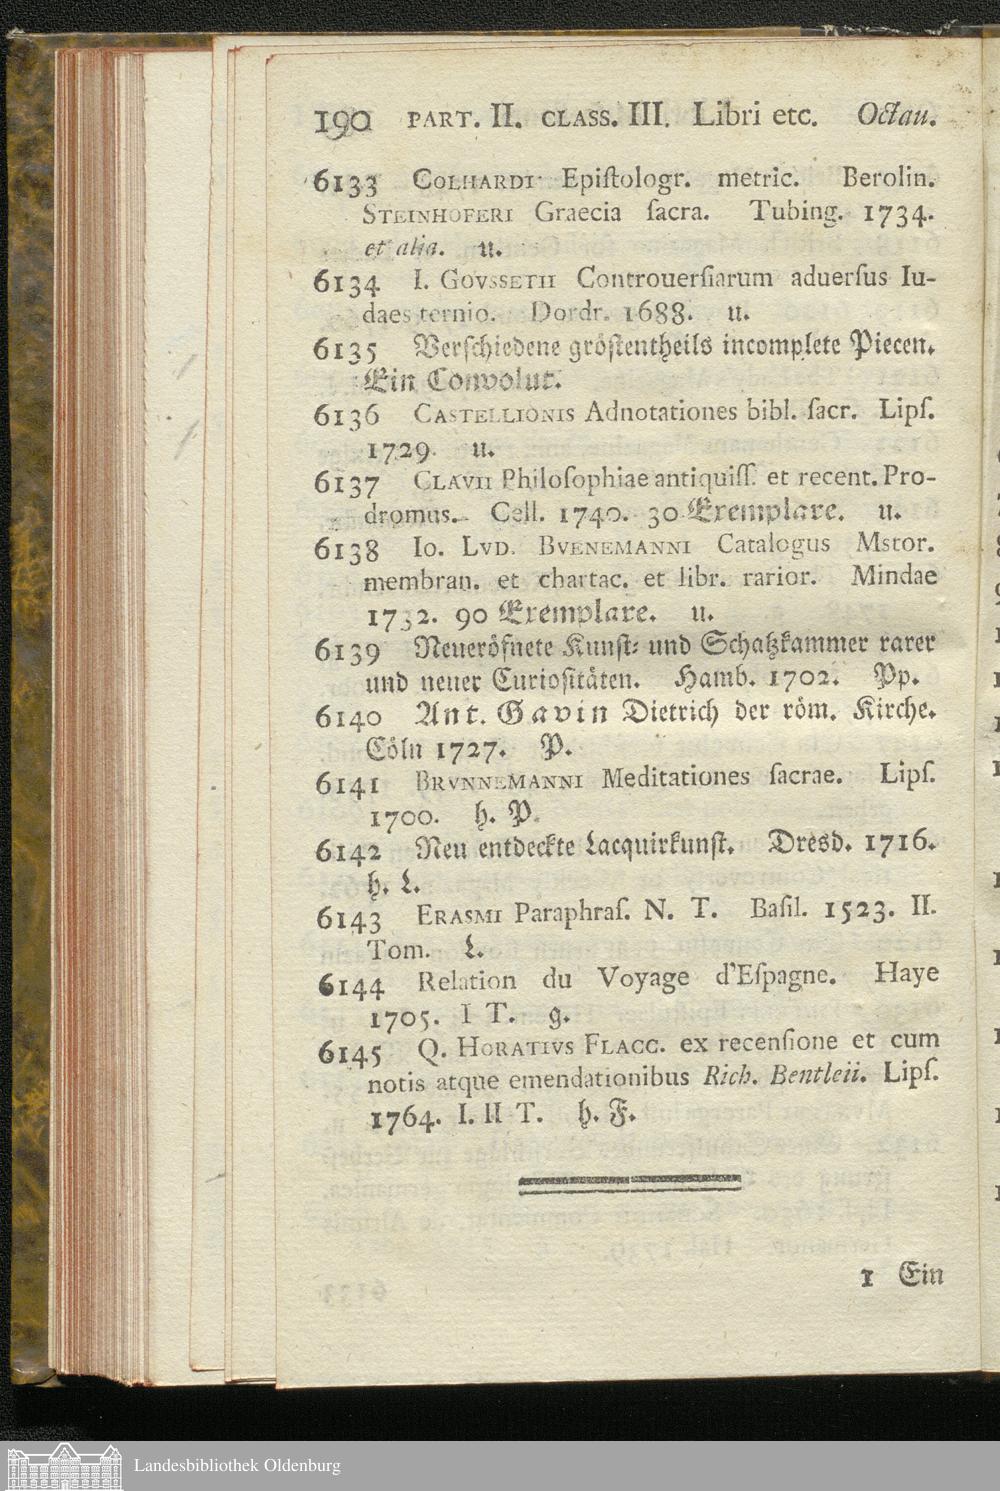 190 PART. II. CLASS. III. Libri etc. Octau.
6133 GOLHARDI Epiſtologr. metric. Berolin.
STEINHOFERI Graecia ſacra. Tubing. 1734.
et alia. u.
6134 I. GOVSSETII Controuerſiarum aduerſus Iu-
daes ternio. Dordr. 1688. u.
6135 Verſchiedene gröſtentheils incomplete Piecen.
Ein Convolut.
6136 CASTELLIONIS Adnotationes bibl. ſacr. Lipſ.
1729. u.
6137 CLAVII Philoſophiae antiquiſſ. et recent. Pro-
dromus. Cell. 1740. 30 Exemplare. u.
6138 IO. LVD. BVENEMANNI Catalogus Mstor.
membran. et chartac. et libr. rarior. Mindae
1732. 90 Exemplare. u.
6139 Neueröfnete Kunſt- und Schatzkammer rarer
und neuer Curioſitäten. Hamb. 1702. Pp.
6140 Ant. Gavin Dietrich der röm. Kirche.
Cöln 1727. P.
6141 BRVNNEMANNI Meditationes ſacrae. Lipſ.
1700. h. P.
6142 Neu entdeckte Lacquirkunſt. Dresd. 1716.
h. L.
6143 ERASMI Paraphraſ. N. T. Baſil. 1523. II.
Tom. L.
6144 Relation du Voyage d'Eſpagne. Haye
1705. I T. g.
6145 Q. HORATIVS FLACC. ex recenſione et cum
notis atque emendationibus Rich. Bentleii. Lipſ.
1764. I. II T. h. F.
1 Ein
Landesbibliothek Oldenburg